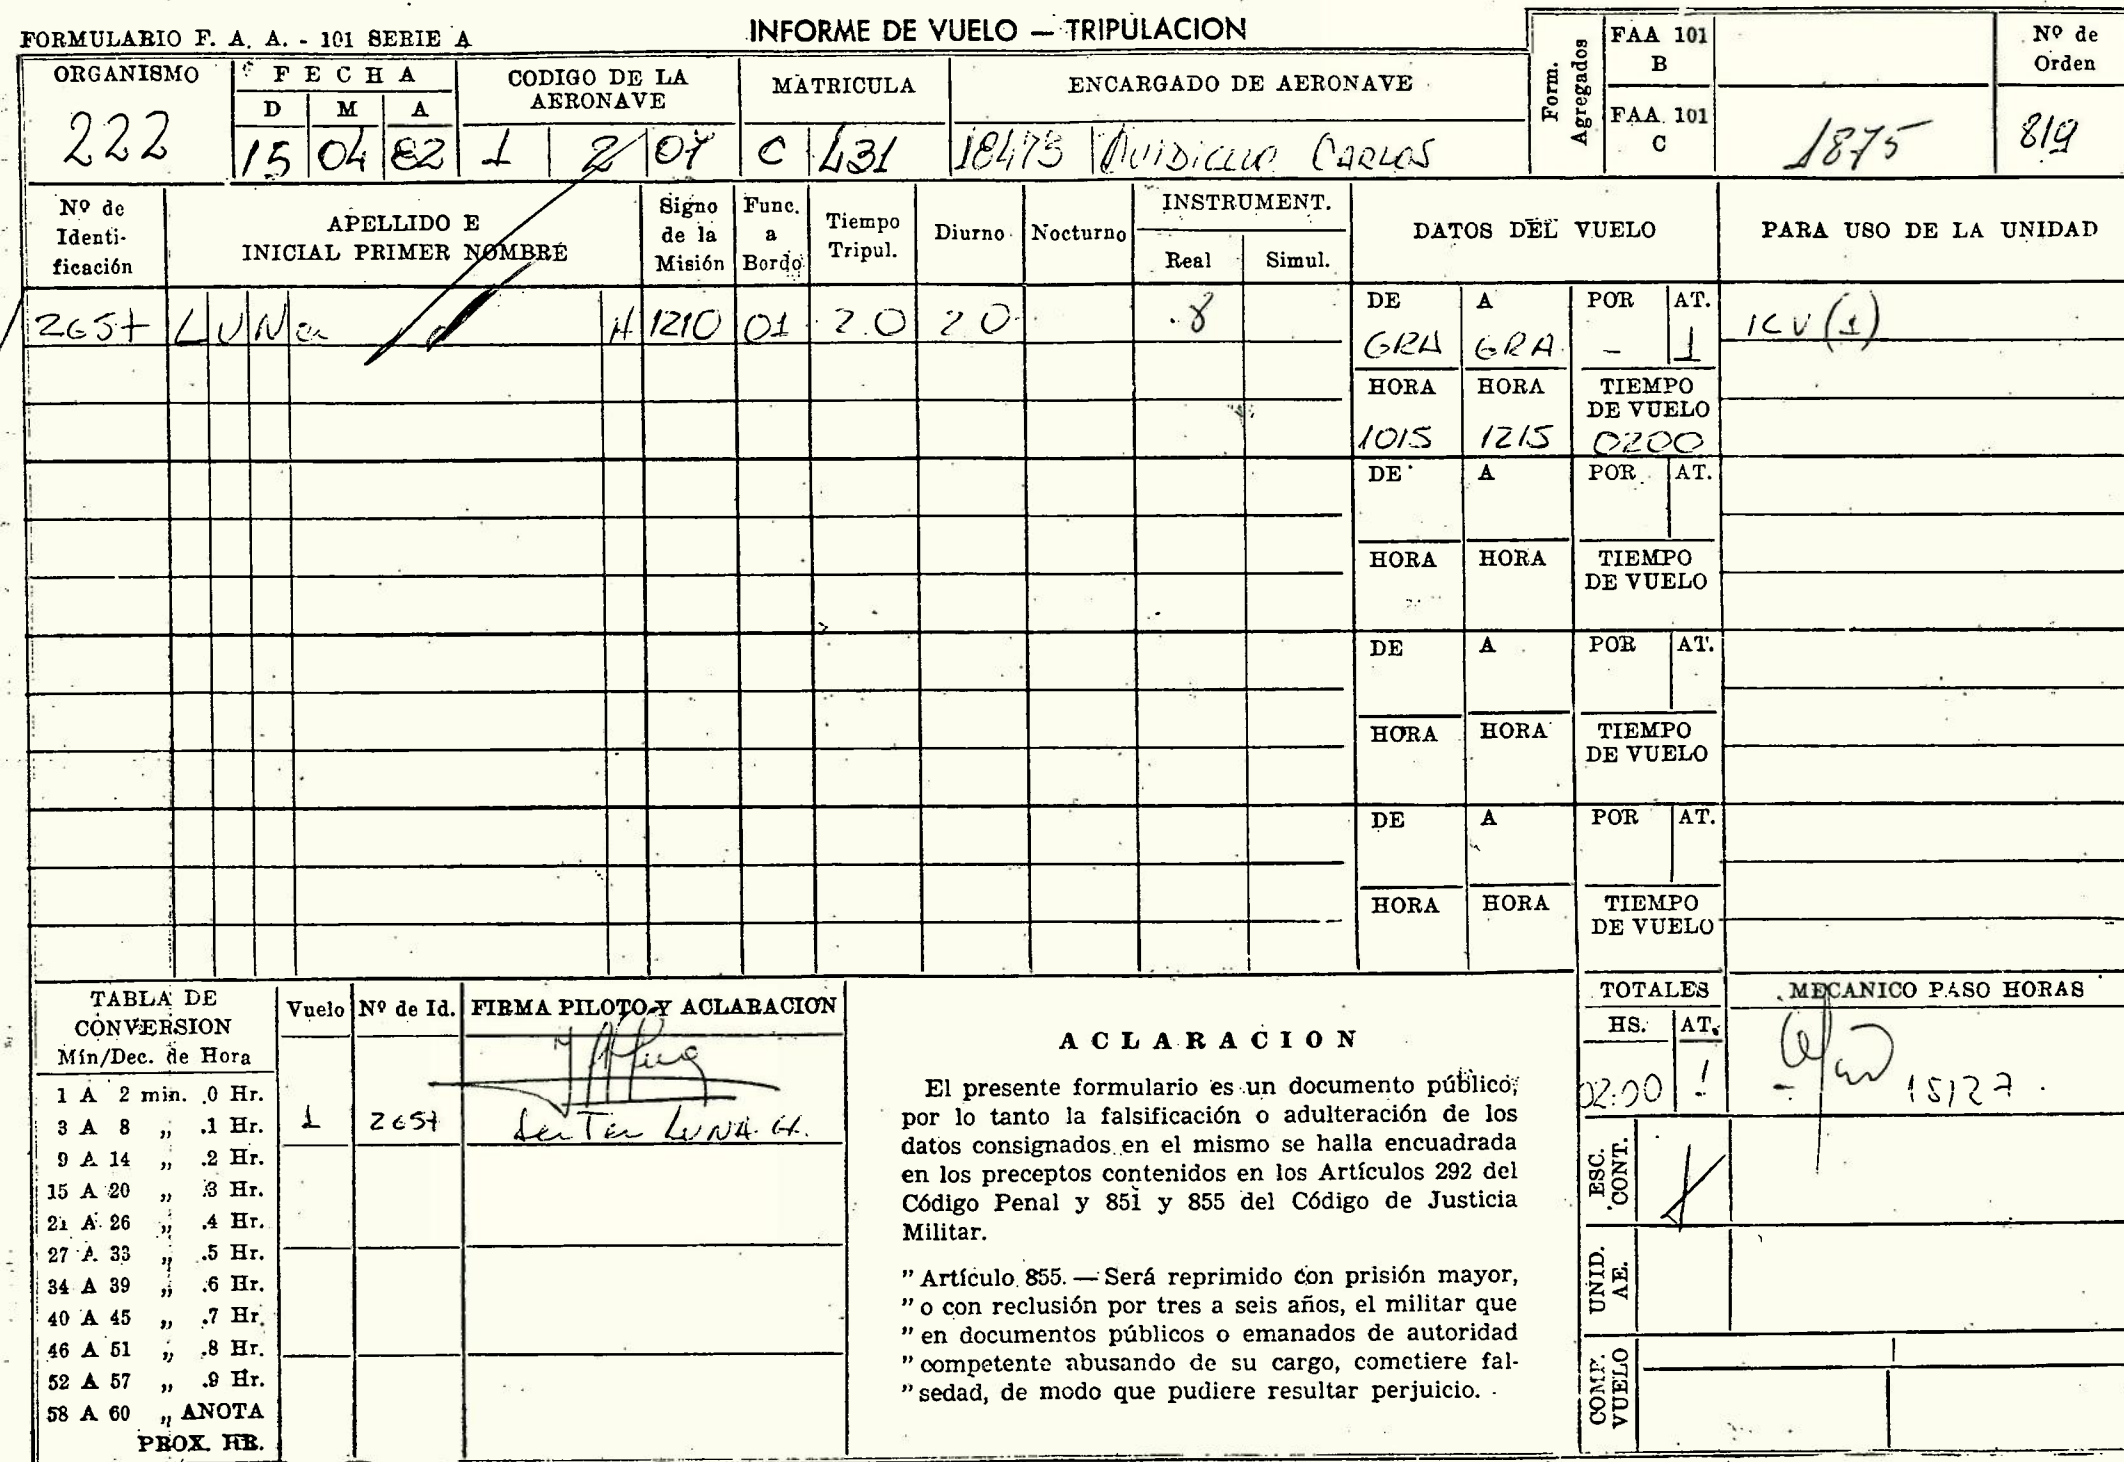 FORMULARIO F. A. A. - 101 SERIE A
INFORME DE VUELO — TRIPULACION
Form. Agregados
FAA 101 B
FAA 101 C
1875
Nº de Orden
819
ORGANISMO
222
FECHA
D M A
15 04 82
CODIGO DE LA AERONAVE
1 2 07
MATRICULA
C 431
ENCARGADO DE AERONAVE
18473 CARLOS
Nº de Identi-
ficación
APELLIDO E
INICIAL PRIMER NOMBRE
Signo de la Misión
Func. a Bordo
Tiempo Tripul.
Diurno
Nocturno
INSTRUMENT.
Real Simul.
DATOS DEL VUELO
PARA USO DE LA UNIDAD
2657 LUNA H 1210 01 2.0 2.0 .8
DE A POR AT.
GRA GRA - 1
ICV (1)
HORA HORA TIEMPO DE VUELO
1015 1215 0200
DE A POR AT.
HORA HORA TIEMPO DE VUELO
DE A POR AT.
HORA HORA TIEMPO DE VUELO
DE A POR AT.
HORA HORA TIEMPO DE VUELO
TABLA DE
CONVERSION
Min/Dec. de Hora
1 A 2 min. .0 Hr.
3 A 8 „ .1 Hr.
9 A 14 „ .2 Hr.
15 A 20 „ .3 Hr.
21 A 26 „ .4 Hr.
27 A 33 „ .5 Hr.
34 A 39 „ .6 Hr.
40 A 45 „ .7 Hr.
46 A 51 „ .8 Hr.
52 A 57 „ .9 Hr.
58 A 60 „ ANOTA
PROX. HR.
Vuelo Nº de Id. FIRMA PILOTO Y ACLARACION
1 2657 LUNA H.
ACLARACION
El presente formulario es un documento público,
por lo tanto la falsificación o adulteración de los
datos consignados en el mismo se halla encuadrada
en los preceptos contenidos en los Artículos 292 del
Código Penal y 851 y 855 del Código de Justicia
Militar.
” Artículo 855. — Será reprimido con prisión mayor,
” o con reclusión por tres a seis años, el militar que
” en documentos públicos o emanados de autoridad
” competente abusando de su cargo, cometiere fal-
” sedad, de modo que pudiere resultar perjuicio.
TOTALES
HS. AT.
02:00 1
MECANICO PASO HORAS
15127
ESC. CONT.
UNID. AE.
COMP. VUELO